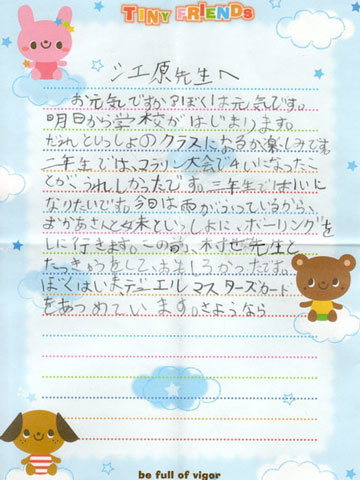 TINY FRIENDS
ジエ原先生へ
お元気ですか？ぼくは元気です。
明日から学校がはじまります。
だれといっしょのクラスになるか楽しみです
二年生では、マラソン大会で4いになったこ
とが、うれしかったです。三年生では1いに
なりたいです。今日は雨がふっているから、
おかあさんと妹といっしょに、ボーリングを
しに行きます。この前、村せ先生と
たっきゅうをして、おもしろかったです。
ぼくはいま、デュエルマスターズカード
をあつめています。さようなら
be full of vigor